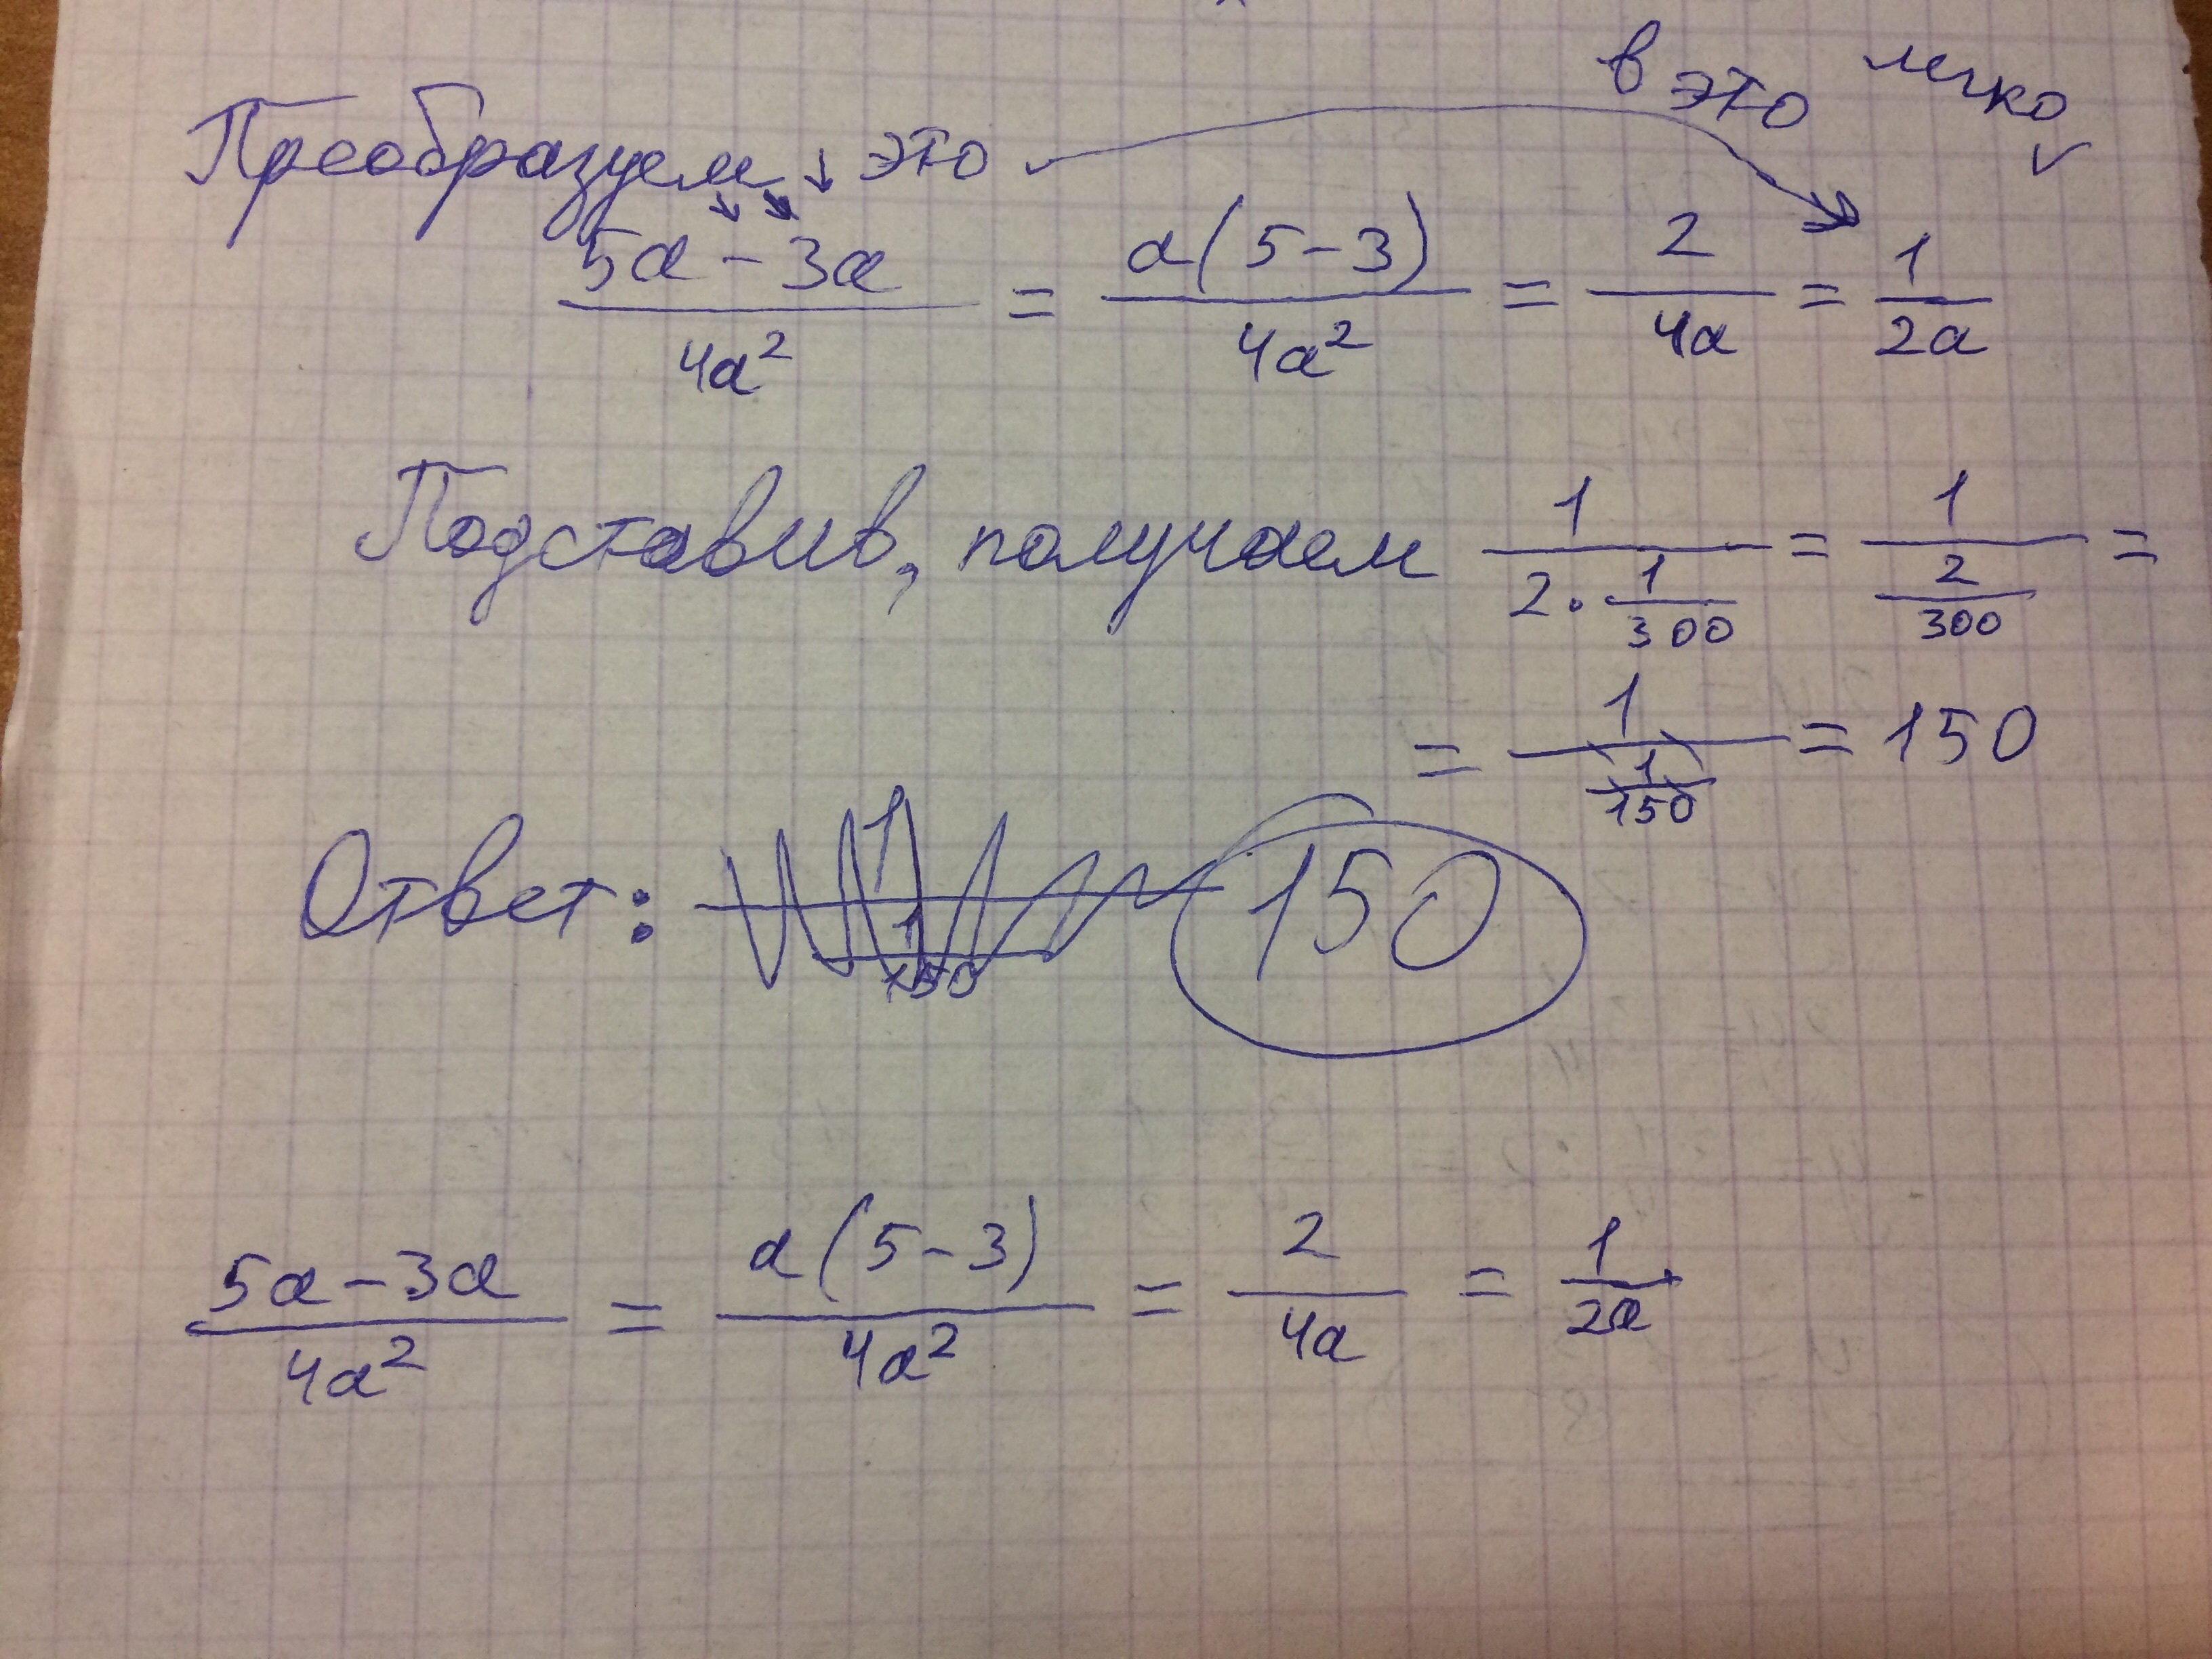 в это легко
Преобразуем это
(5a - 3a)/(4a²) = a(5-3)/(4a²) = 2/(4a) = 1/(2a)
Подставив, получаем 1/(2·1/300) = 1/(2/300) =
= 1/(1/150) = 150
Ответ: 150
(5a - 3a)/(4a²) = a(5-3)/(4a²) = 2/(4a) = 1/(2a)